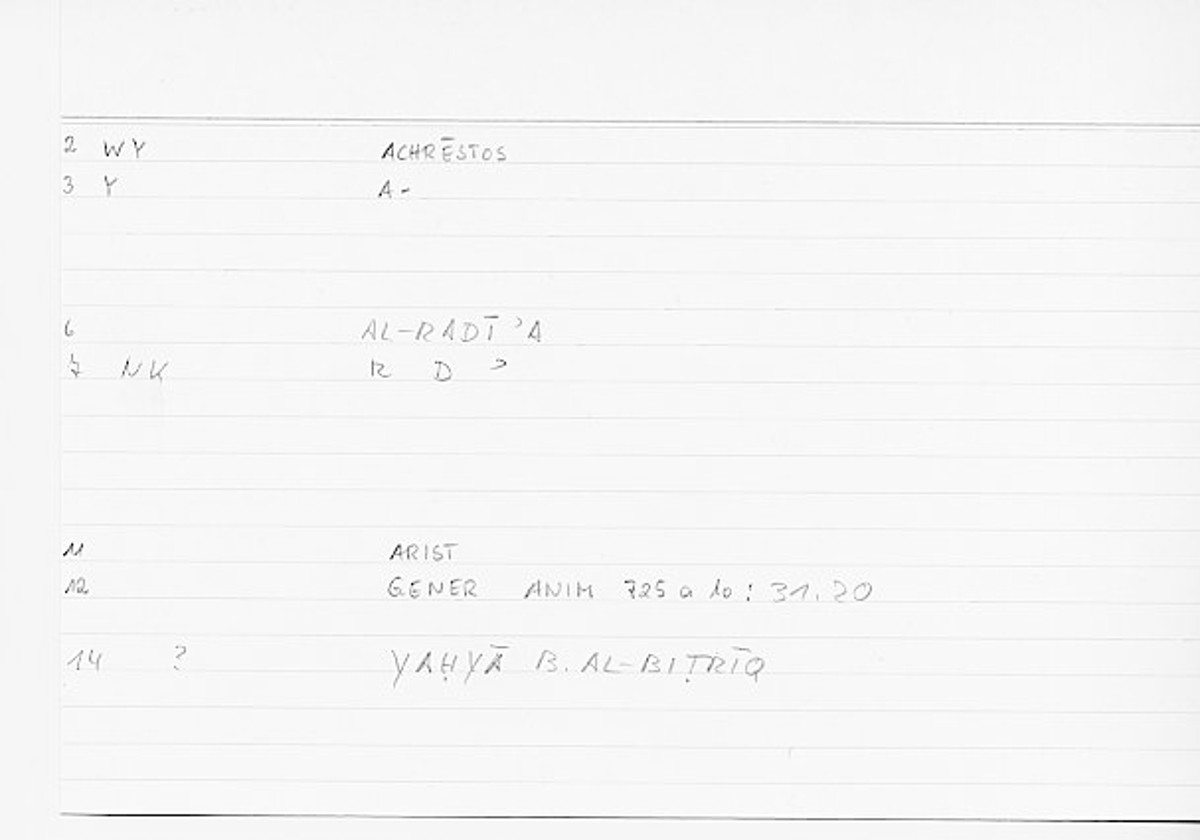 2 WY ACHRĒSTOS
3 Y A-
6 AL-RADĪʾA
7 NK R D ʾ
11 ARIST
12 GENER ANIM 725 a 10 : 31.20
14 ? YAḤYĀ B. AL-BIṬRĪQ